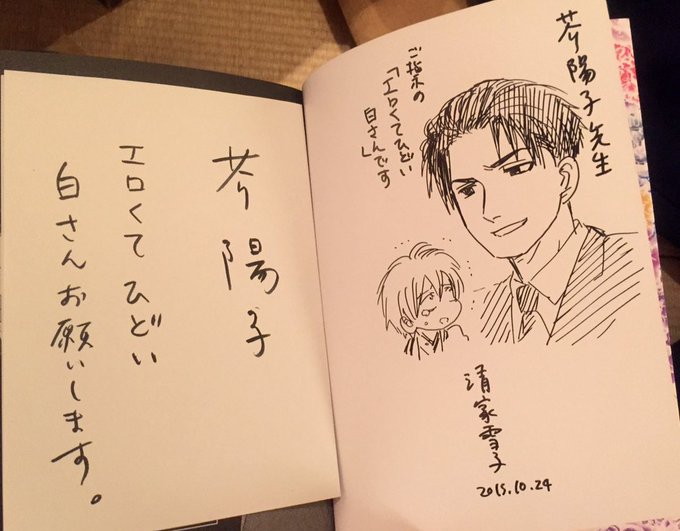 芥陽子
エロくてひどい
白さんお願いします。
芥陽子先生
ご指示の
「エロくてひどい
白さん」です
清家雪子
2015.10.24